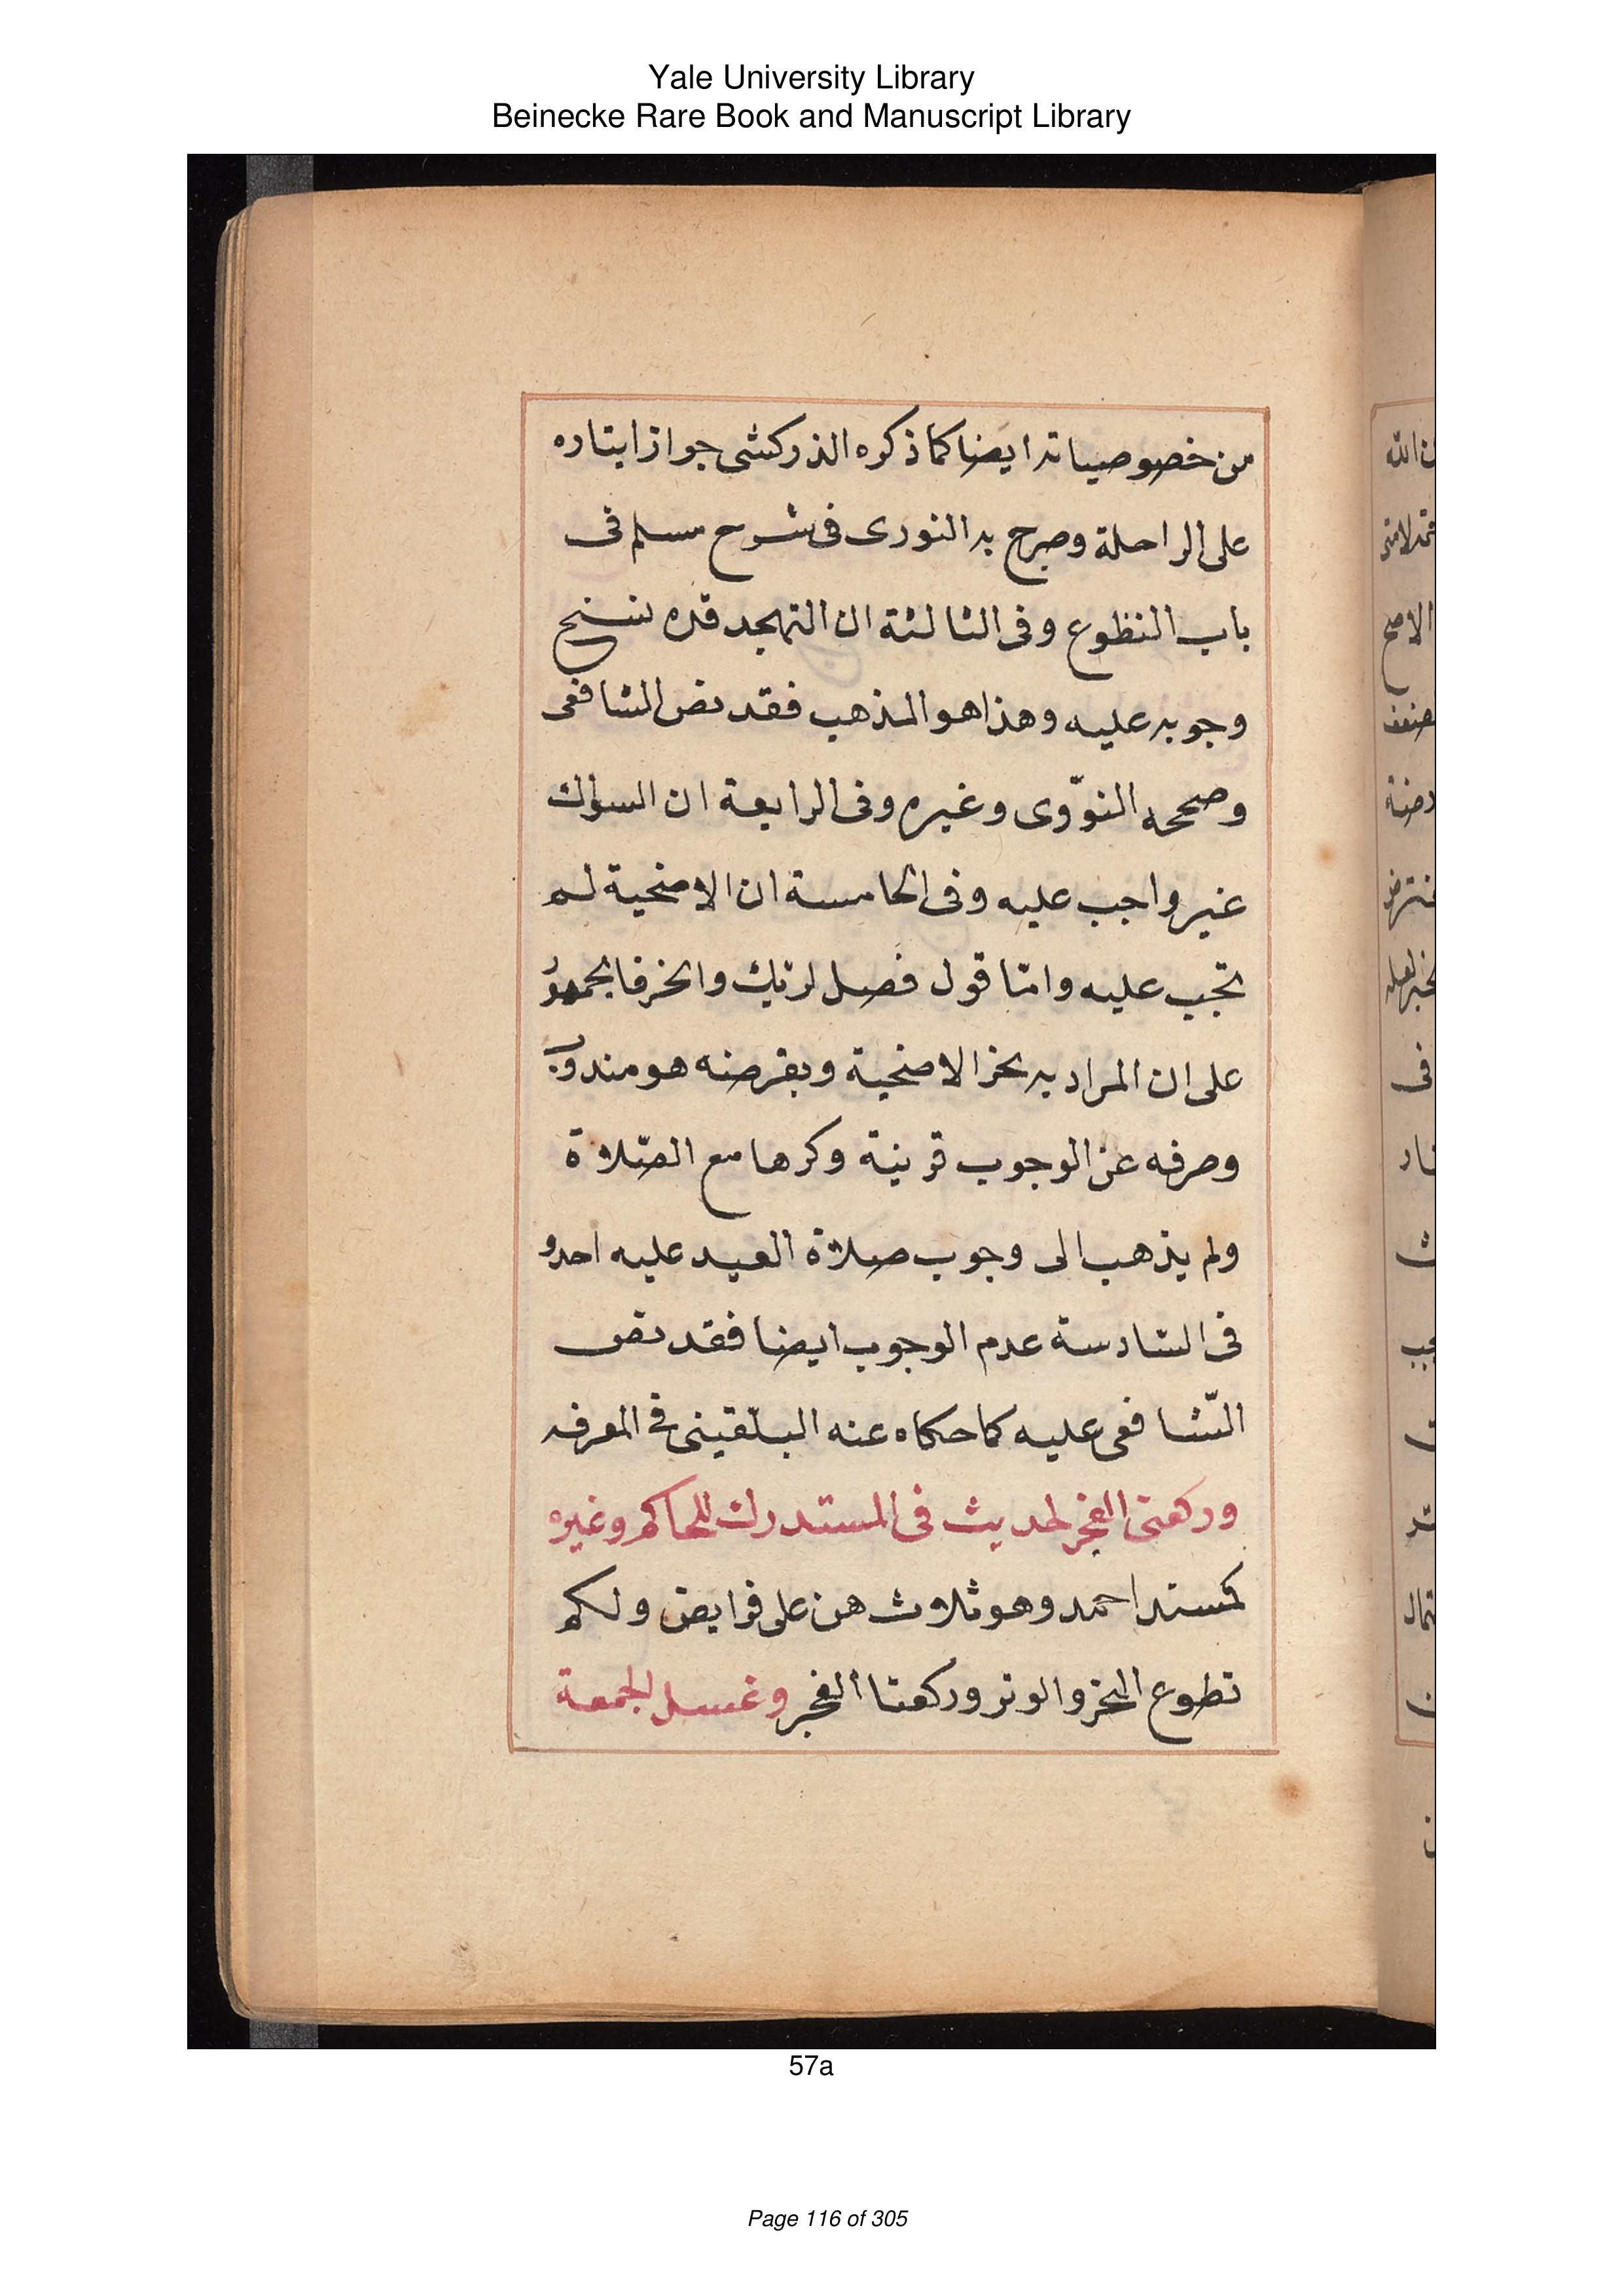 Yale University Library
Beinecke Rare Book and Manuscript Library
من خصوصياته ايضا كما ذكره الذركشى جواز ايتاره
على الراحلة وصرح به النورى فى شرح مسلم فى
باب النظوع وفى الثالثة ان التهجد قده نسنح
وجوبه عليه وهذا هو المذهب فقد نص الشافعى
وصححه النوّوى وغيره وفى الرابعة ان السواك
غير واجب عليه وفى الخامسة ان الاضحية لم
تجب عليه وامّا قول فصل لربّك وانخر فالجمهور
على ان المراد به نخر الاضحية وبفرضه هو مندوب
وصرفه عن الوجوب قرينة وكرها مع الصّلاة
ولم يذهب الى وجوب صلاة العيد عليه احد و
فى السّادسة عدم الوجوب ايضا فقد نص
الشّافعى عليه كما حكاه عنه البلّقينى فى المعرفه
وركعتى الفجر لحديث فى المستدرك للحاكم وغيره
كمسند احمد وهو ثلاث هن على فرايض ولكم
تطوع النخر والوتر وركعتا الفجر وغسل لجمعة
57a
Page 116 of 305